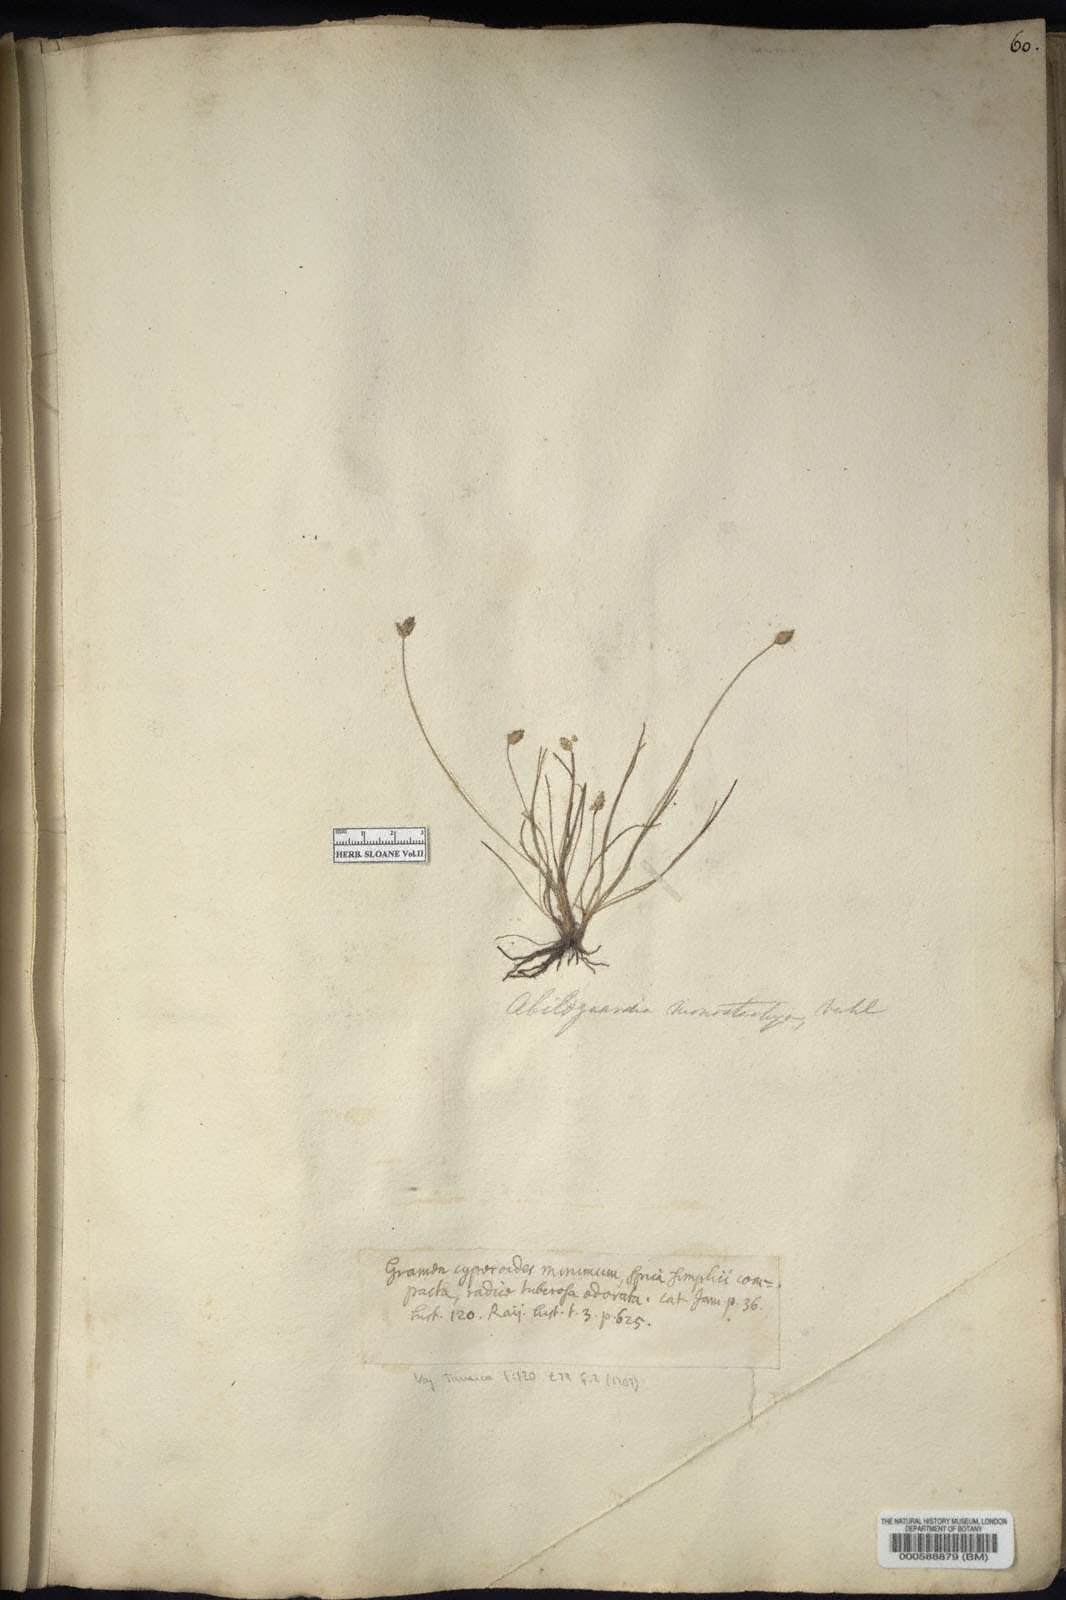 60.
HERB. SLOANE Vol.II
Abildgaardia monostachya, Vahl
Gramen cyperoides minimum, spica simplici com=
pacta, radice tuberosa odorata. cat. Jam. p. 36.
hist. 120. Raij. hist. t. 3. p. 625.
Voy. Jamaica 1:120 t.79 f.2 (1707)
THE NATURAL HISTORY MUSEUM, LONDON
DEPARTMENT OF BOTANY
000588879 (BM)